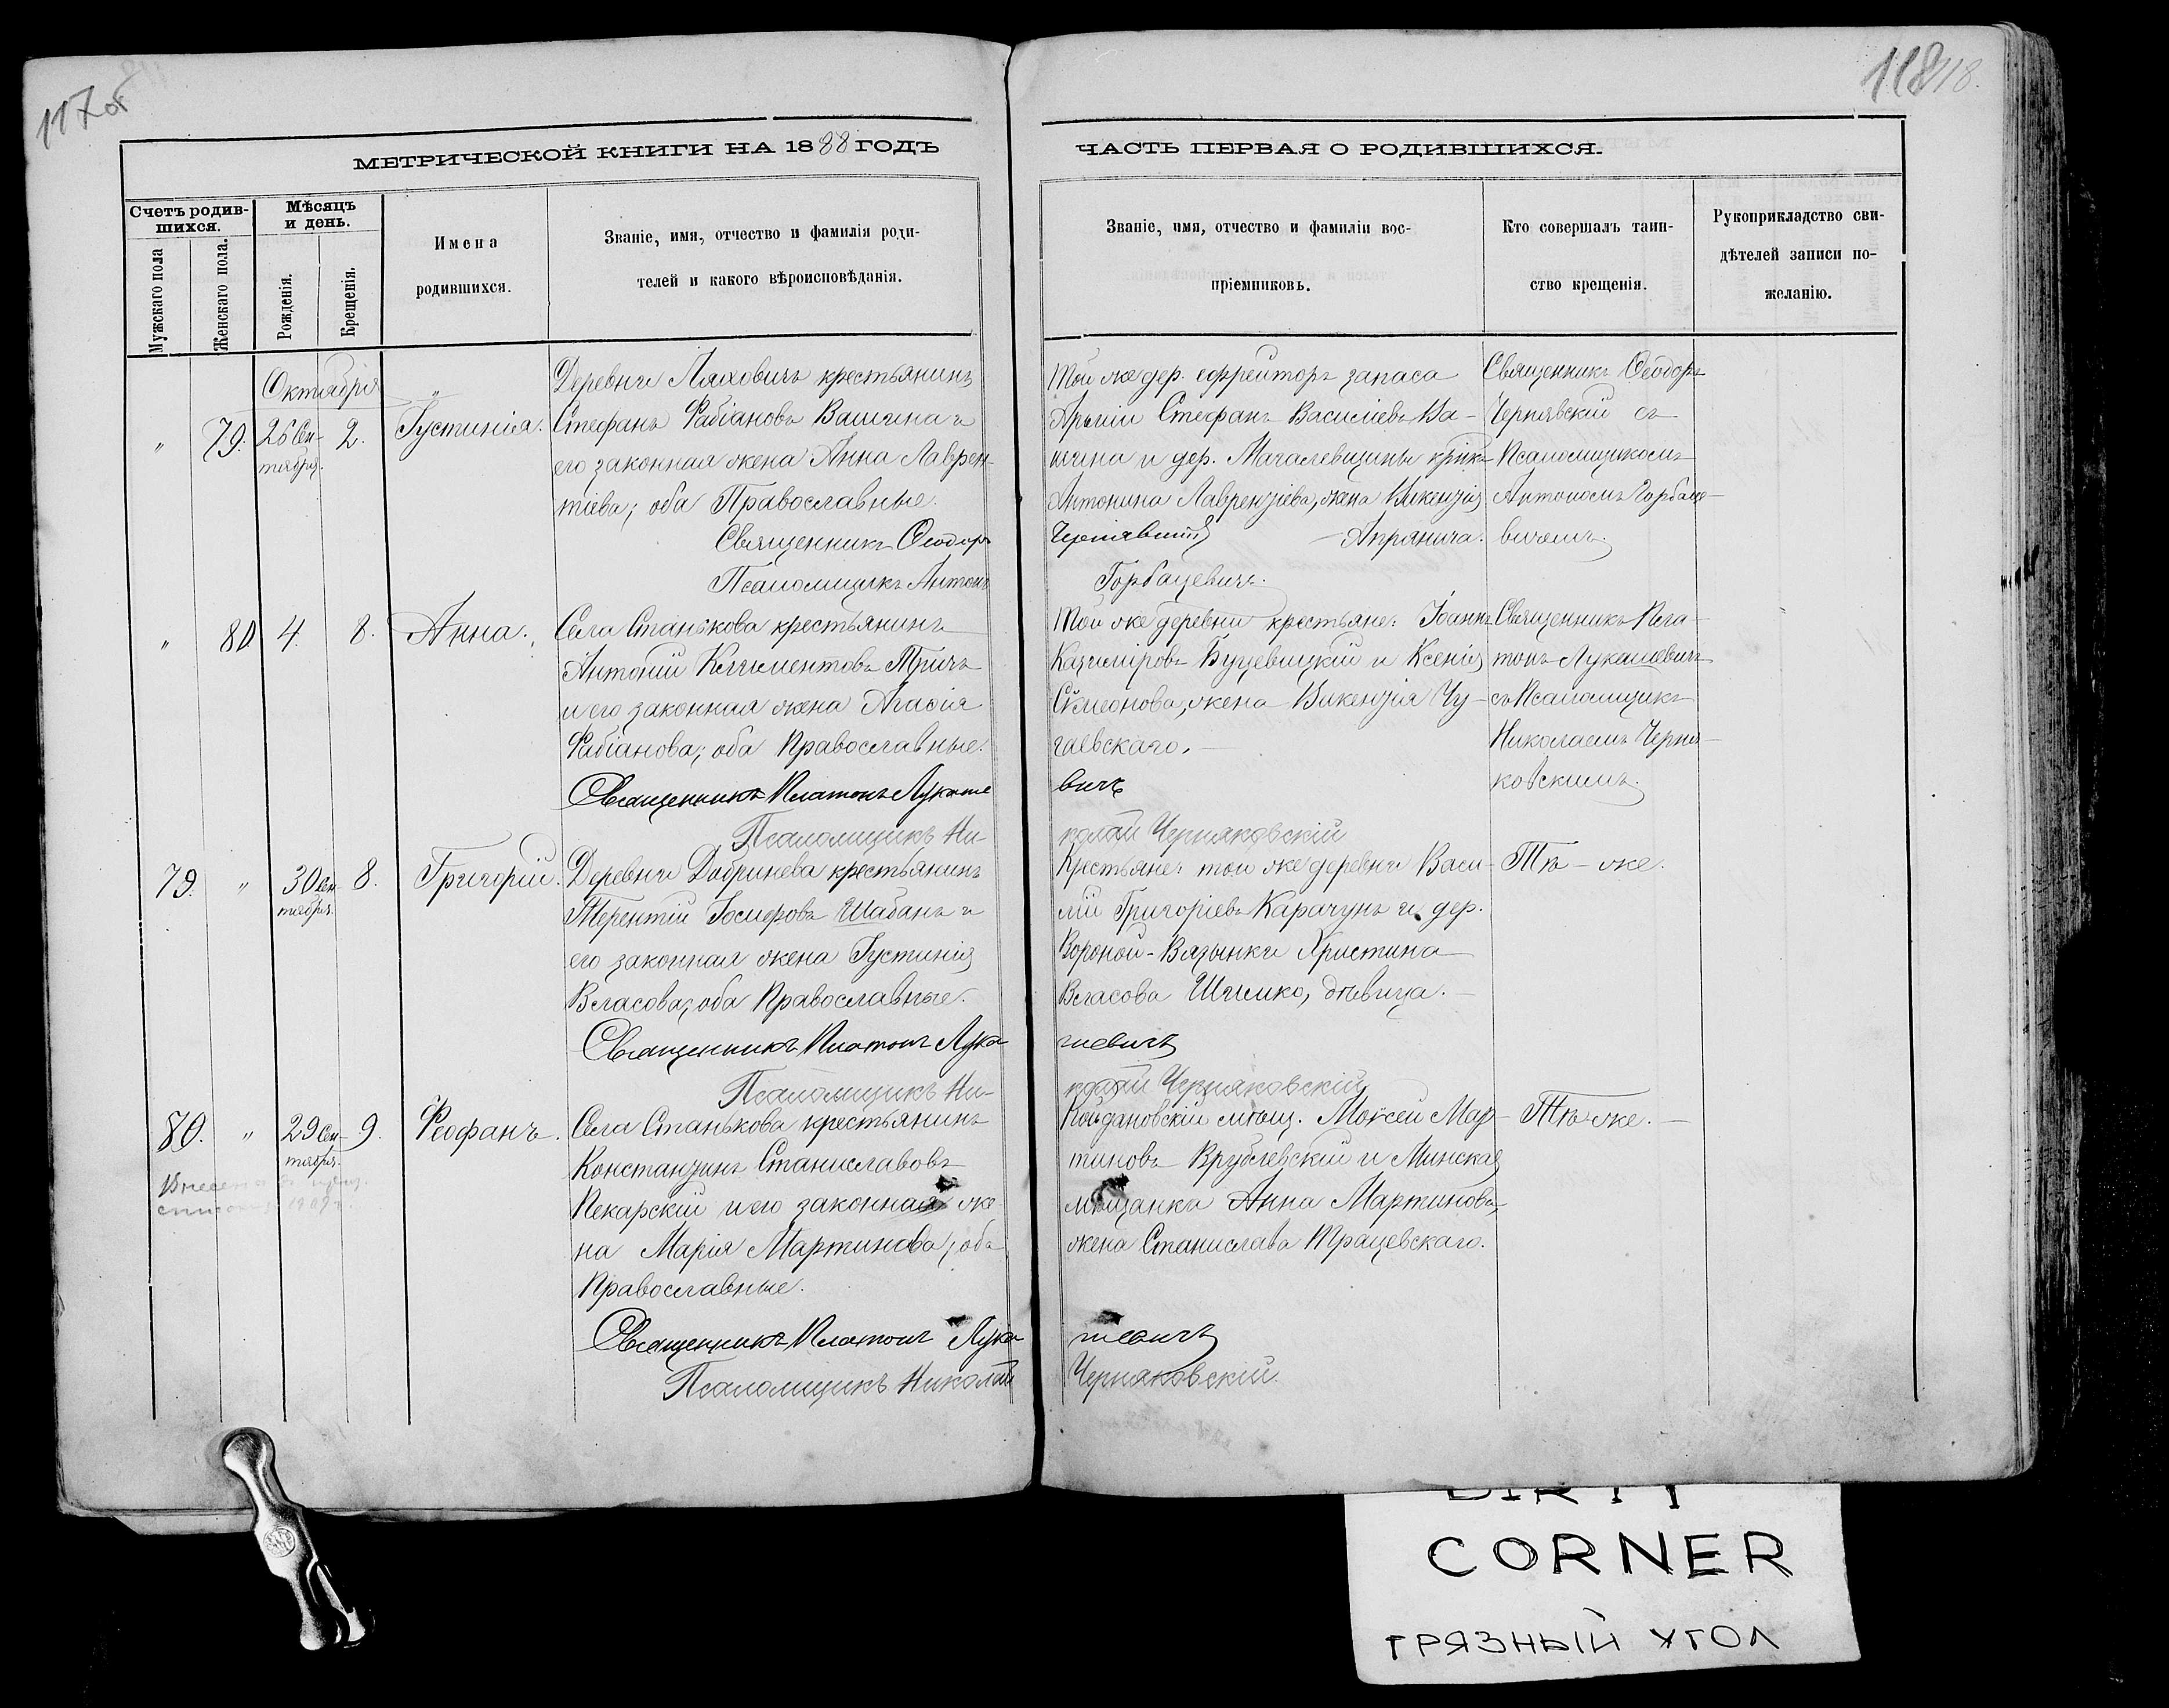 117 об
118
118.
МЕТРИЧЕСКОЙ КНИГИ НА 1888 ГОДЪ
ЧАСТЬ ПЕРВАЯ О РОДИВШИХСЯ.
Счетъ родив-
шихся.
Мужскаго пола
Женскаго пола.
Мѣсяцъ
и день.
Рожденія.
Крещенія.
Имена
родившихся.
Званіе, имя, отчество и фамилія роди-
телей и какого вѣроисповѣданія.
Званіе, имя, отчество и фамиліи вос-
пріемниковъ.
Кто совершалъ таин-
ство крещенія.
Рукоприкладство сви-
дѣтелей записи по-
желанію.
Октября
„ 79. 26 Сен-
тября. 2. Іустинія.
Деревни Ляховичъ крестьянинъ
Стефанъ Фабіановъ Вашчина и
его законная жена Анна Лаврен-
тіева; оба Православные.
Священникъ Ѳеодоръ
Псаломщикъ Антонъ
Той же дер. ефрейторъ запаса
Арміи Стефанъ Василіевъ Ва-
шчина и дер. крест.
Антонина Лаврентіева, жена Викентія
Чернявскій Апрянича.
Горбацевичъ.
Священникъ Ѳеодоръ
Чернявскій съ
Псаломщикомъ
Антономъ Горбаце-
вичемъ.
„ 80 4. 8. Анна.
Села Станькова крестьянинъ
Антоній Климентовъ Тричъ
и его законная жена Агаѳія
Фабіанова; оба Православные.
Священникъ Платонъ Лукаше
Псаломщикъ Ни-
Той же деревни крестьяне: Іоаннъ
Казиміровъ Буцевицкій и Ксенія
Симеонова, жена Викентія Чу-
гаевскаго.
вичъ
колай Черняковскій
Священникъ Пла-
тонъ Лукашевичъ
съ Псаломщик
Николаемъ Черня-
ковскимъ.
79. „ 30 Сен-
тября. 8. Григорій.
Деревни Добринева крестьянинъ
Терентій Іосифовъ Шабанъ и
его законная жена Іустинія
Власова; оба Православные.
Священникъ Платонъ Лука
Псаломщикъ Ни-
Крестьяне: той же деревни Васи-
лій Григоріевъ Карачунъ и дер.
Вороной-Вязынки Христина
Власова Шимко, дѣвица.
шевичъ
колай Черняковскій
Тѣ-же.
80. „ 29 Сен-
тября. 9. Ѳеофанъ.
Села Станькова крестьянинъ
Константинъ Станиславовъ
Пекарскій и его законная же-
на Марія Мартинова; оба
Православные.
Священникъ Платонъ Лука
Псаломщикъ Николай
Койдановскій мѣщ. Моѵсей Мар-
тиновъ Врублевскій и Минская
мѣщанка Анна Мартинова,
жена Станислава Трацевскаго.
шевичъ
Черняковскій
Тѣ же.
DIRTY
CORNER
ГРЯЗНЫЙ УГОЛ